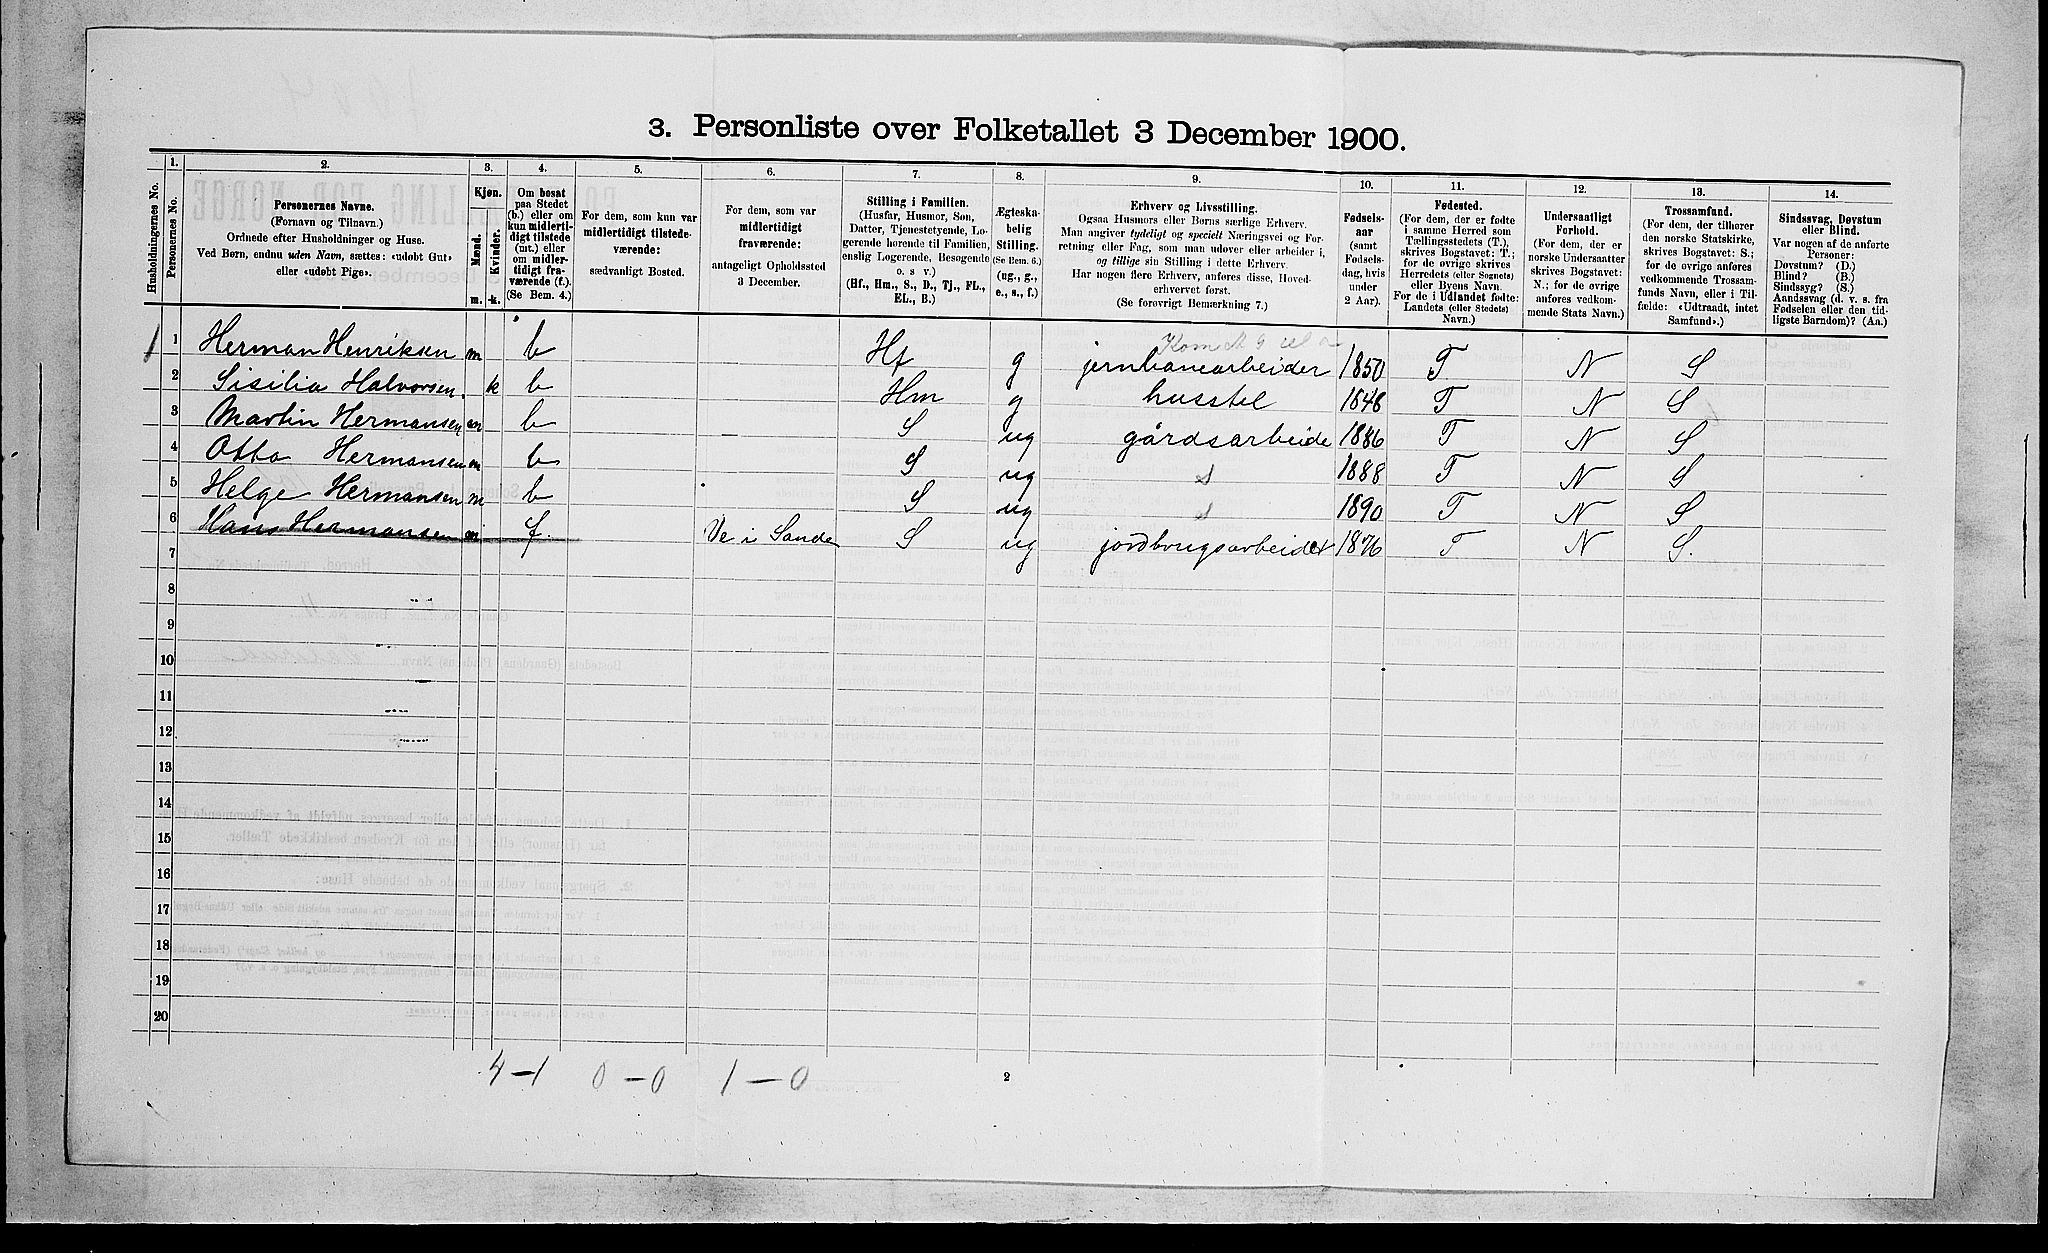 3. Personliste over Folketallet 3 December 1900.
Husholdningernes No.
1.
Personernes No.
2.
Personernes Navne.
(Fornavn og Tilnavn.)
Ordnede efter Husholdninger og Huse.
Ved Børn, endnu uden Navn, sættes: «udøbt Gut»
eller «udøbt Pige».
3.
Kjøn.
Mænd.
Kvinder.
m.
k.
4.
Om bosat
paa Stedet
(b.) eller om
kun midlerti-
digt tilstede
(mt.) eller
om midler-
tidigt fra-
værende (f.).
(Se Bem. 4.)
5.
For dem, som kun var
midlertidigt tilstede-
værende:
sædvanligt Bosted.
6.
For dem, som var
midlertidigt
fraværende:
antageligt Opholdssted
3 December.
7.
Stilling i Familien.
(Husfar, Husmor, Søn,
Datter, Tjenestetyende, Lo-
gerende hørende til Familien,
enslig Logerende, Besøgende
o. s. v.)
(Hf., Hm., S., D., Tj., FL.,
EL., B.)
8.
Ægteska-
belig
Stilling.
(Se Bem. 6.)
(ug., g.,
e., s., f.)
9.
Erhverv og Livsstilling.
Ogsaa Husmors eller Børns særlige Erhverv.
Man angiver tydeligt og specielt Næringsvei og For-
retning eller Fag, som man udøver eller arbeider i,
og tillige sin Stilling i dette Erhverv.
Har nogen flere Erhverv, anføres disse, Hoved-
erhvervet først.
(Se forøvrigt Bemærkning 7.)
10.
Fødsels-
aar
(samt
Fødsels-
dag, hvis
under
2 Aar).
11.
Fødested.
(For dem, der er fødte
i samme Herred som
Tællingsstedets (T.),
skrives Bogstavet: T.;
for de øvrige skrives
Herredets (eller Sognets)
eller Byens Navn.
For de i Udlandet fødte:
Landets (eller Stedets)
Navn.)
12.
Undersaatligt
Forhold.
(For dem, der er
norske Undersaatter
skrives Bogstavet:
N.; for de øvrige
anføres vedkom-
mende Stats Navn.)
13.
Trossamfund.
(For dem, der tilhører
den norske Statskirke,
skrives Bogstavet: S.;
for de øvrige anføres
vedkommende Trossam-
funds Navn, eller i Til-
fælde: «Udtraadt, intet
Samfund».)
14.
Sindssvag, Døvstum
eller Blind.
Var nogen af de anførte
Personer:
Døvstum? (D.)
Blind? (B.)
Sindssyg? (S.)
Aandssvag (d. v. s. fra
Fødselen eller den tid-
ligste Barndom)? (Aa.)
1 1 Herman Henriksen m b Hf g jernbanearbeider 1850 T N S
2 Sisilia Halvorsen. k b Hm g husstel 1848 T N S
3 Martin Hermansen m b S ug gårdsarbeide 1886 T N S
4 Otto Hermansen m b S ug s 1888 T N S
5 Helge Hermansen m b S ug s 1890 T N S
6 Hans Hermansen m f. Ve i Sande S ug jordbrugsarbeider 1876 T N S.
7
8
9
10
11
12
13
14
15
16
17
18
19
20
4-1 0-0 1-0
2